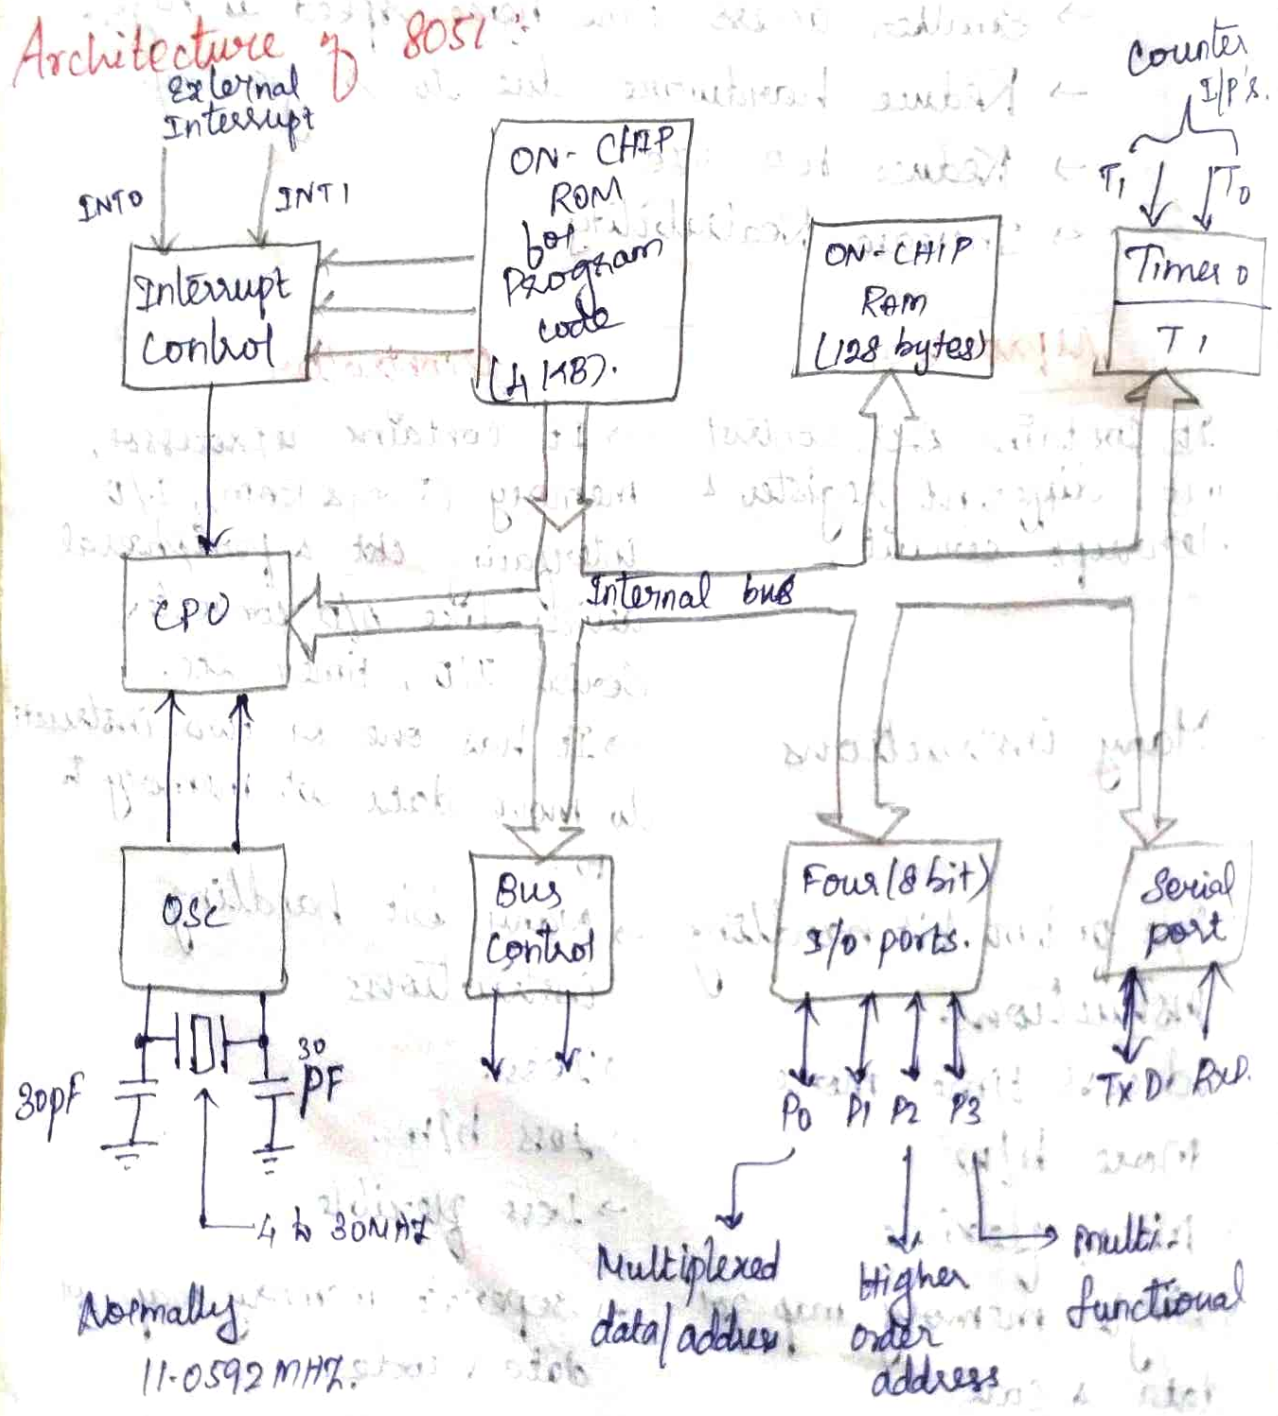 Architecture of 8051 :
External
Interrupt
INT0
INT1
Interrupt
Control
ON-CHIP
ROM
for
Program
code
(4 KB).
ON-CHIP
RAM
(128 bytes)
Counter
I/P's.
T1
T0
Timer 0
T1
CPU
Internal bus
OSC
Bus
Control
Four (8 bit)
I/O ports.
Serial
port
30pF
30
pF
4 to 30MHZ
Normally
11.0592 MHZ.
P0 P1 P2 P3
TxD RxD.
Multiplexed
data/address.
Higher
order
address
multi-
functional